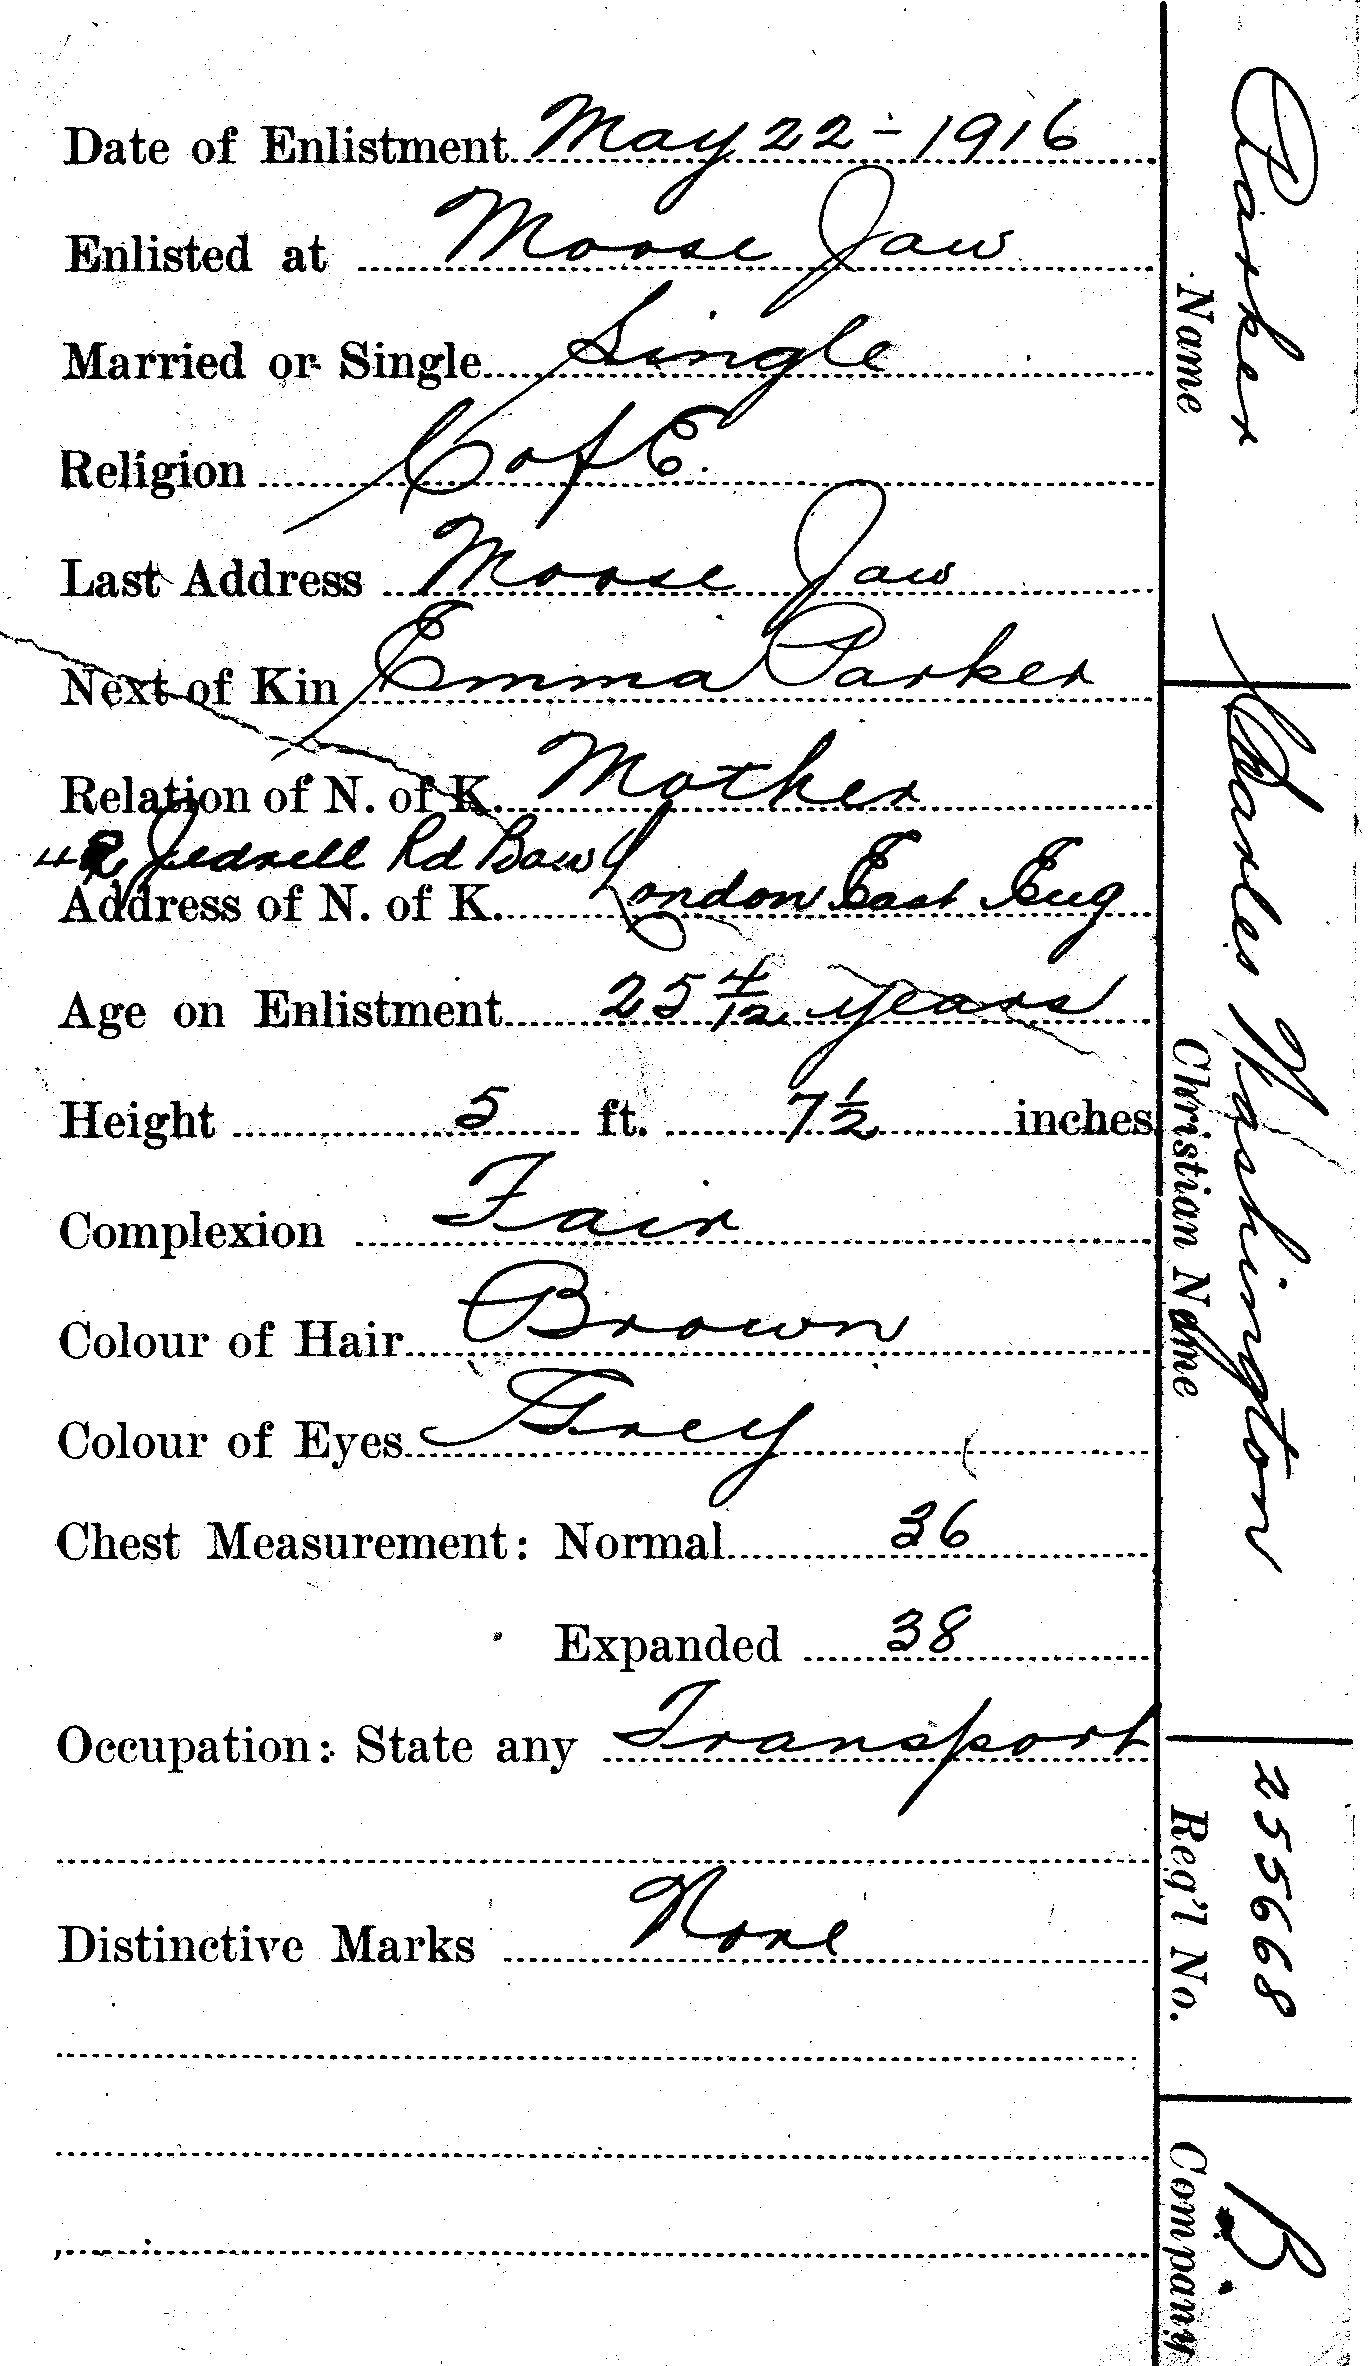 Date of Enlistment May 22 - 1916
Enlisted at Moose Jaw
Married or Single Single
Religion C of E.
Last Address Moose Jaw
Next of Kin Emma Parker
Relation of N. of K. Mother
42 Jedrell Rd Bow
Address of N. of K. London East Eng
Age on Enlistment 25 4/12 years
Height 5 ft. 7 1/2 inches
Complexion Fair
Colour of Hair Brown
Colour of Eyes Grey
Chest Measurement: Normal 36
Expanded 38
Occupation: State any Transport
Distinctive Marks None
Parker
Name
Charles Washington
Christian Name
255668
Reg'l No.
B
Company